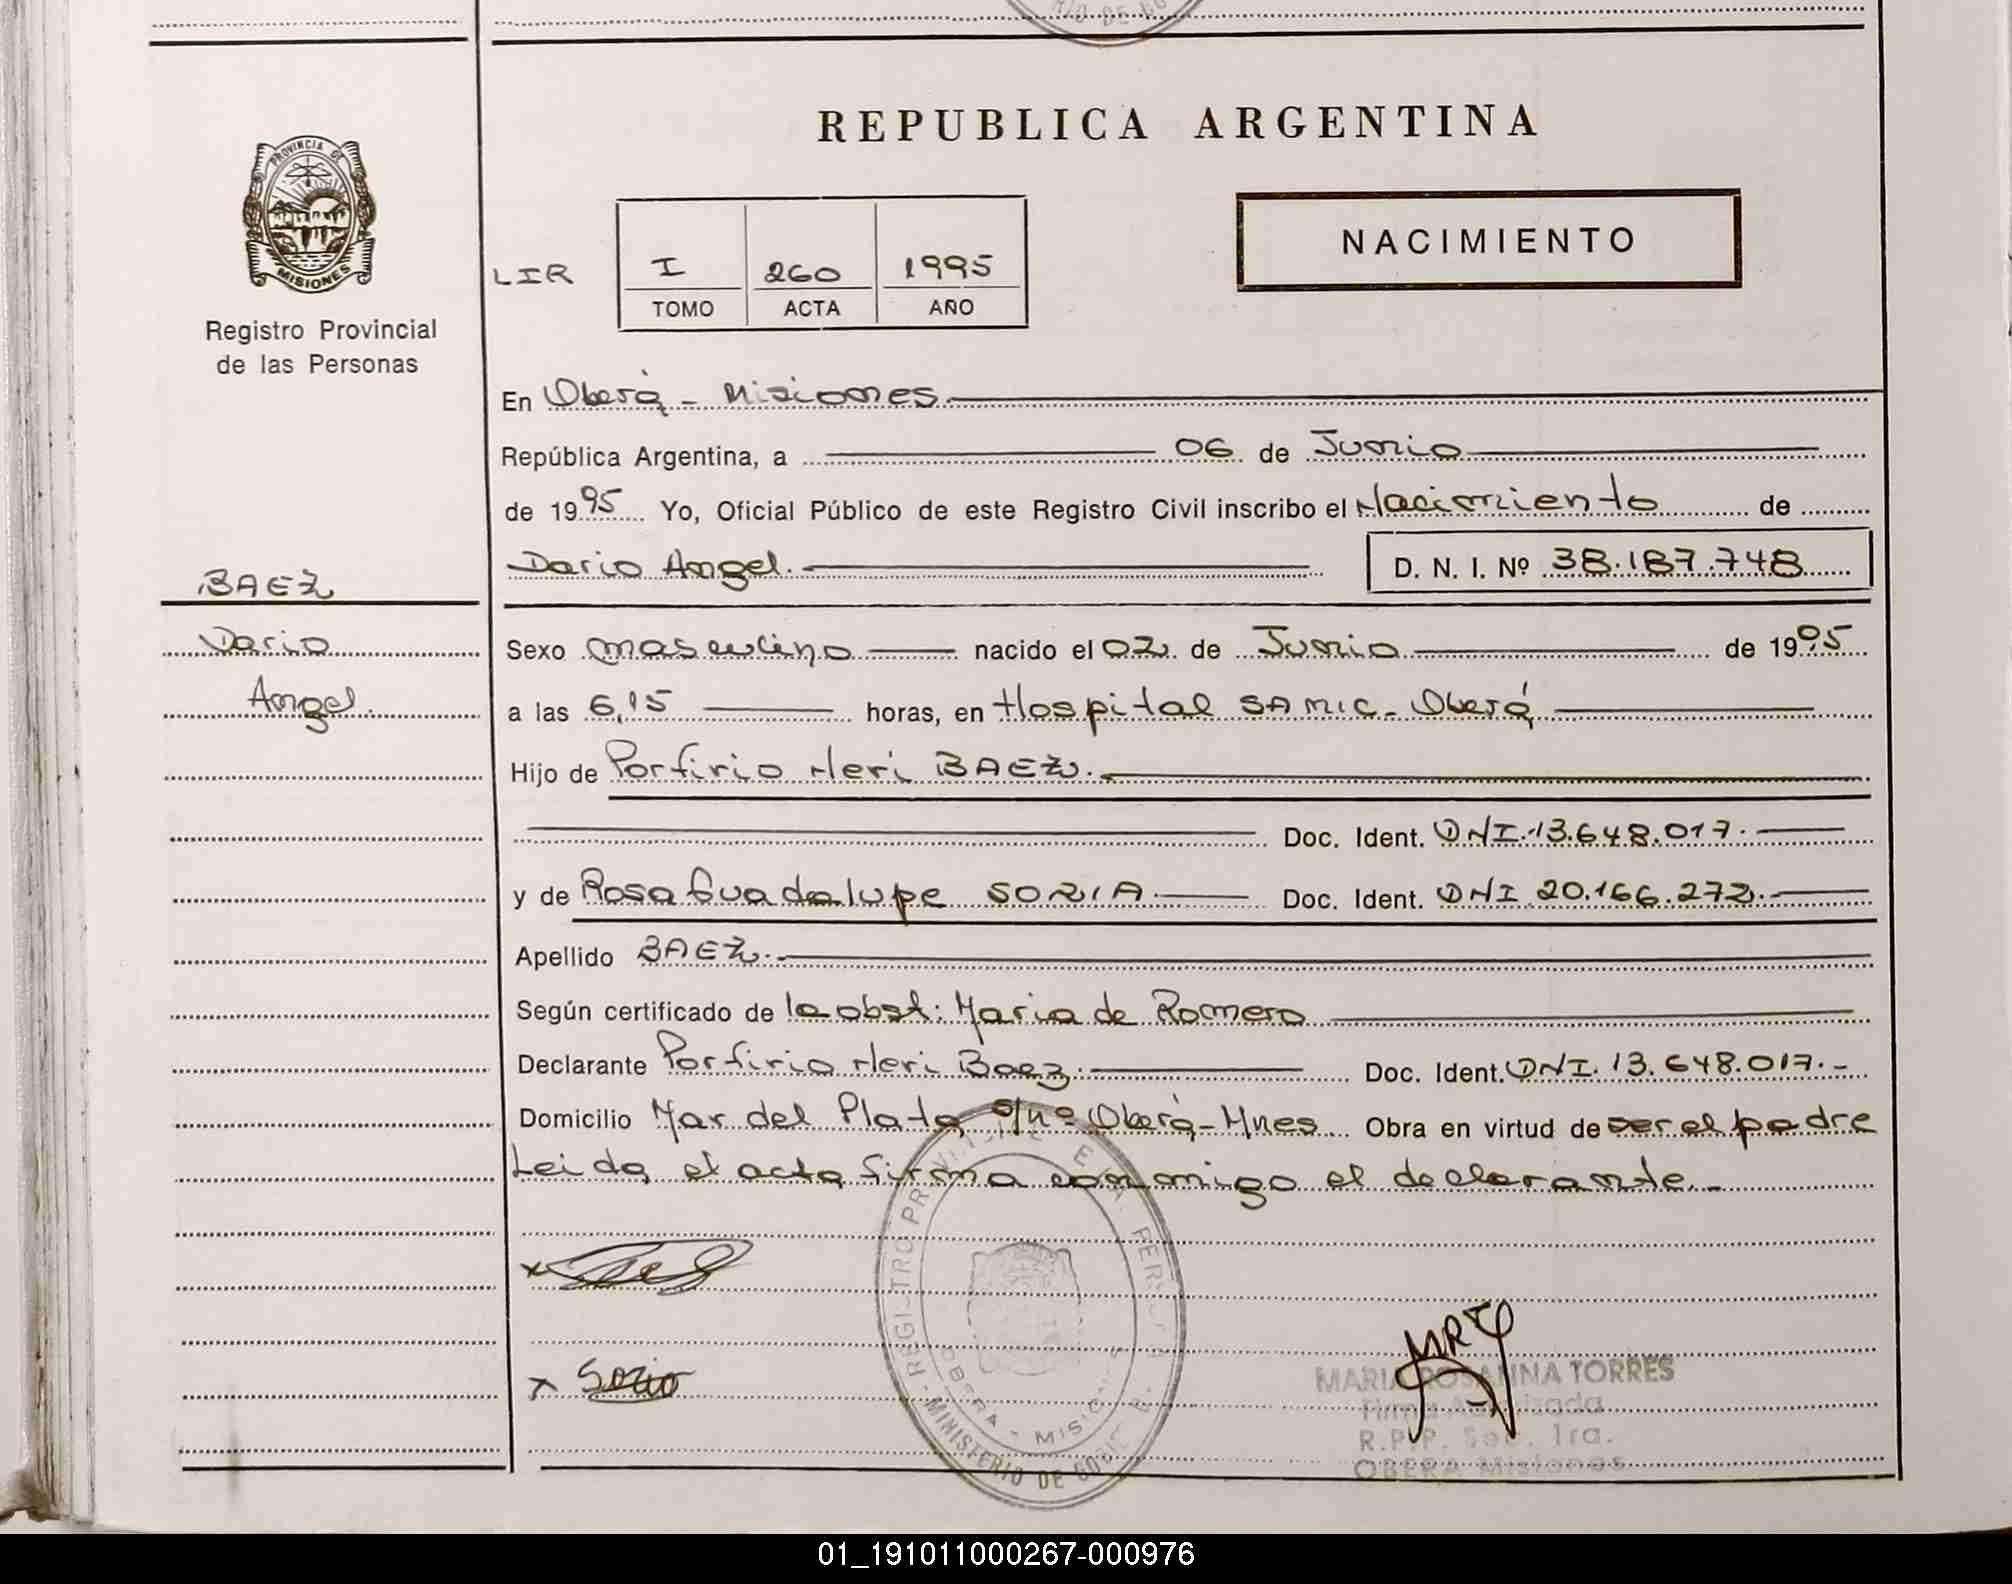 REPUBLICA ARGENTINA
PROVINCIA DE
MISIONES
Registro Provincial
de las Personas
LIR
I 260 1995
TOMO ACTA AÑO
NACIMIENTO
En Oberá - Misiones.
República Argentina, a 06 de Junio
de 1995 Yo, Oficial Público de este Registro Civil inscribo el Nacimiento de
Dario Angel. D. N. I. Nº 38.187.748
BAEZ
Dario
Angel.
Sexo masculino nacido el 02 de Junio de 1995
a las 6,15 horas, en Hospital SAMIC - Oberá
Hijo de Porfirio Neri BAEZ.
Doc. Ident. DNI. 13.648.017.
y de Rosa Guadalupe SORIA Doc. Ident. DNI 20.166.272.
Apellido BAEZ.
Según certificado de la obst: Maria de Romero
Declarante Porfirio Neri Baez. Doc. Ident. DNI. 13.648.017.-
Domicilio Mar del Plata s/nº Oberá - Mnes Obra en virtud de ser el padre
Leida el acta firma conmigo el declarante.-
x
x Soria
REGISTRO PROVINCIAL DE LAS PERSONAS
OBERA - MISIONES
MINISTERIO DE GOBIERNO
MRT
MARIA ROSANNA TORRES
Firma Autorizada
R.P.P. Sec. 1ra.
OBERA Misiones
01_191011000267-000976